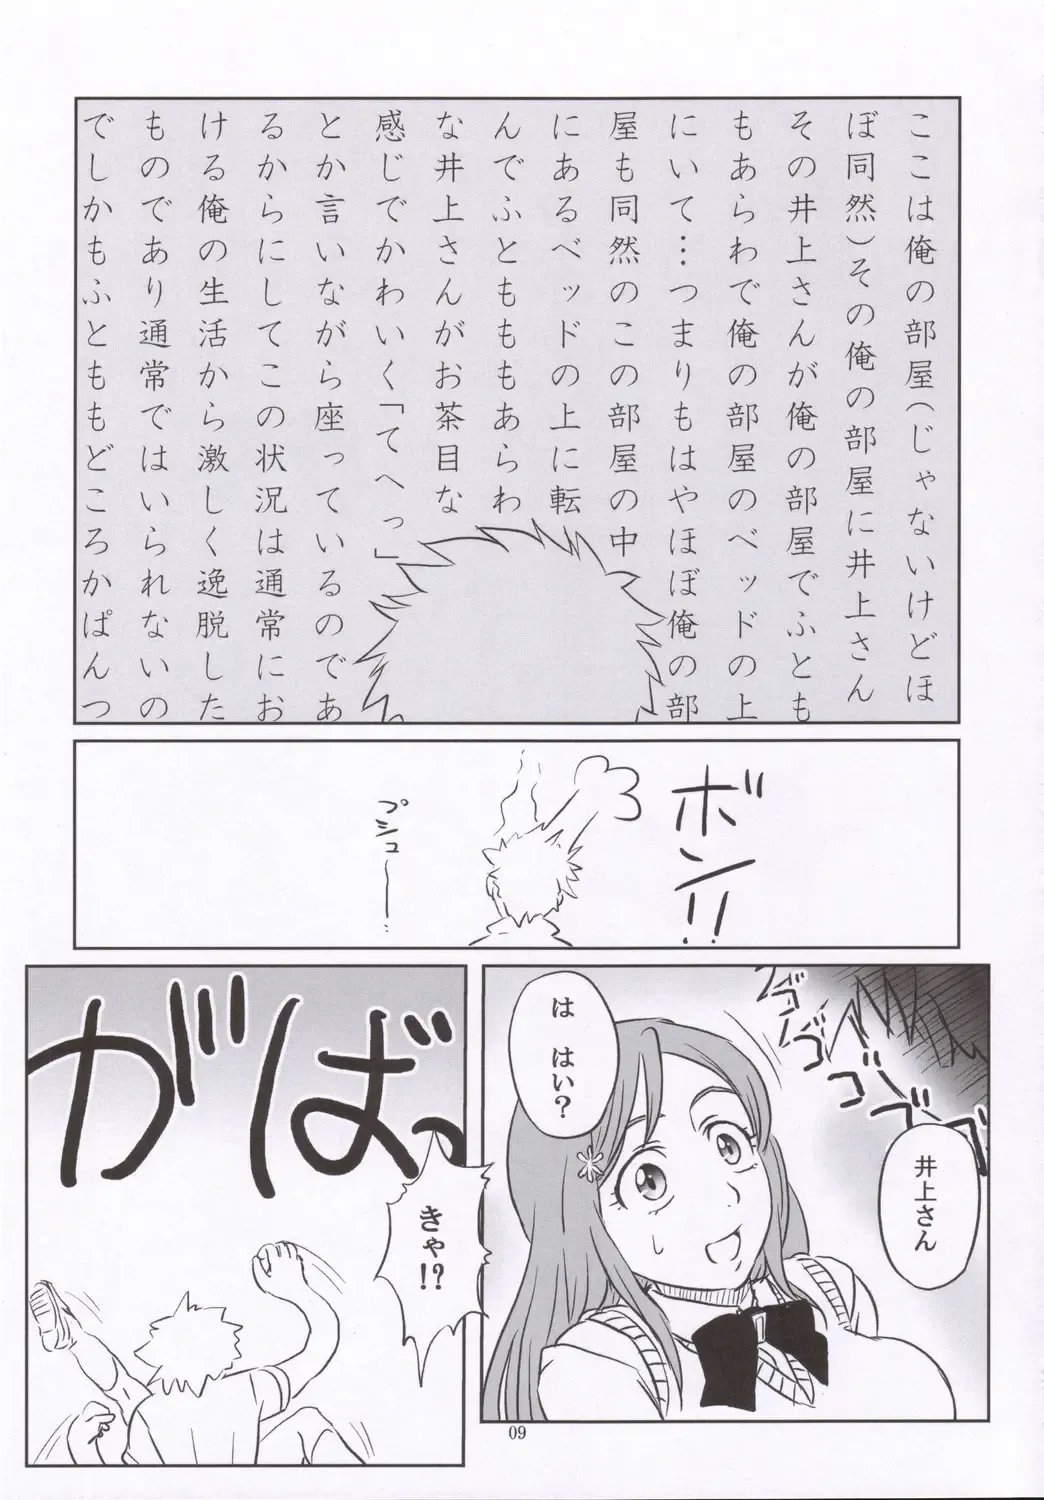 ここは俺の部屋(じゃないけどほ
ぼ同然)その俺の部屋に井上さん
その井上さんが俺の部屋でふとも
もあらわで俺の部屋のベッドの上
にいて…つまりもはやほぼ俺の部
屋も同然のこの部屋の中
にあるベッドの上に転
んでふとももあらわ
な井上さんがお茶目な
感じでかわいく「てへっ」
とか言いながら座っているのであ
るからにしてこの状況は通常にお
ける俺の生活から激しく逸脱した
ものであり通常ではいられないの
でしかもふとももどころかぱんつ
ボン!!
プシュー…
ズズズズズ
井上さん
は はい?
きゃ!?
がばっ
09